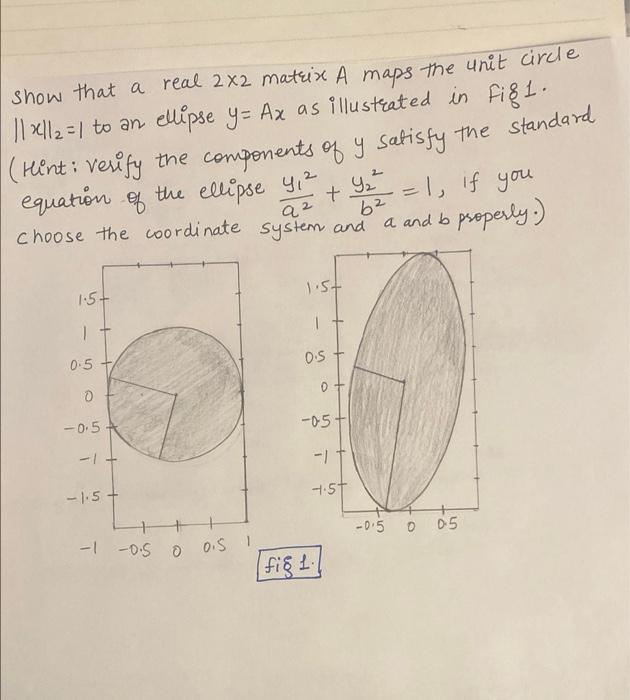 show that a real 2x2 matrix A maps the unit circle
||x||₂=1 to an ellipse y= Ax as illustrated in Fig 1.
(Hint: verify the components of y satisfy the standard
equation of the ellipse y₁²/a² + y₂²/b² = 1, if you
choose the coordinate system and a and b properly.)
1.5
1
0.5
0
-0.5
-1
-1.5
-1 -0.5 0 0.5 1
1.5
1
0.5
0
-0.5
-1
-1.5
-0.5 0 0.5
fig 1.